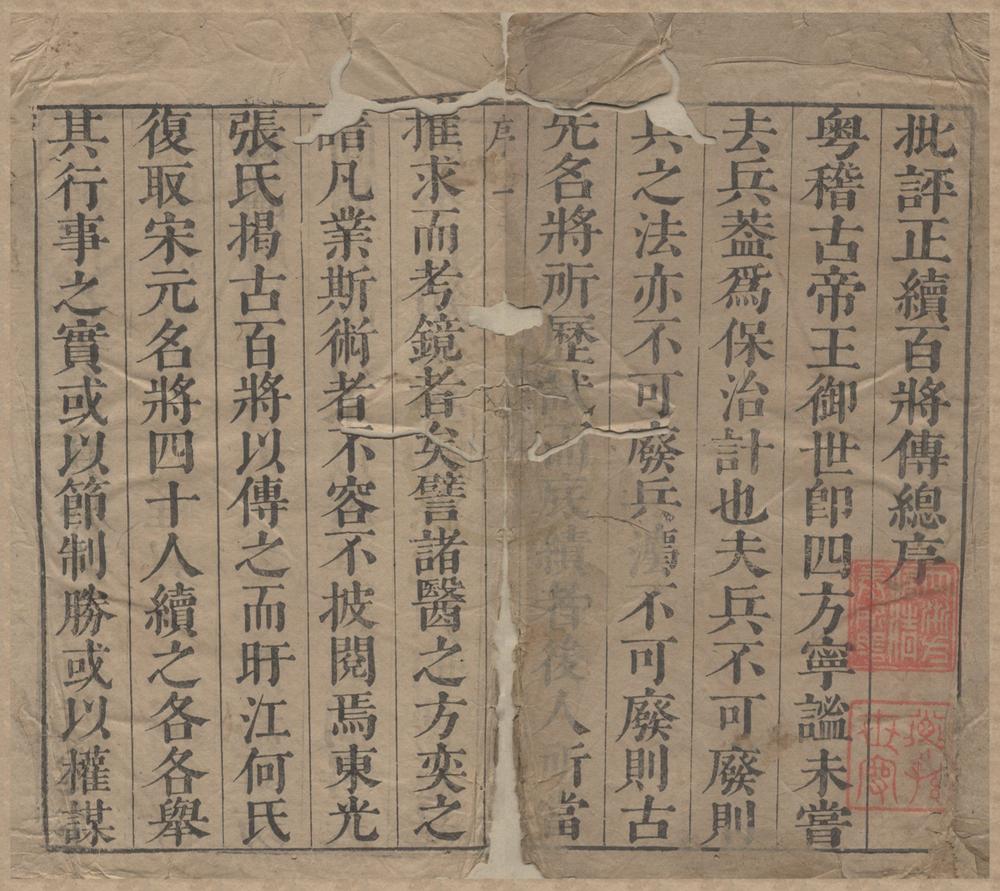 批評正續百將傳總序
粤稽古帝王御世卽四方寧謐未嘗
去兵葢爲保治計也夫兵不可廢則
兵之法亦不可廢兵法不可廢則古
先名將所歷代績者後人所當
序 一
推求而考鏡者矣譬諸醫之方奕之
譜凡業斯術者不容不披閱焉東光
張氏揭古百將以傳之而盱江何氏
復取宋元名將四十人續之各各舉
其行事之實或以節制勝或以權謀